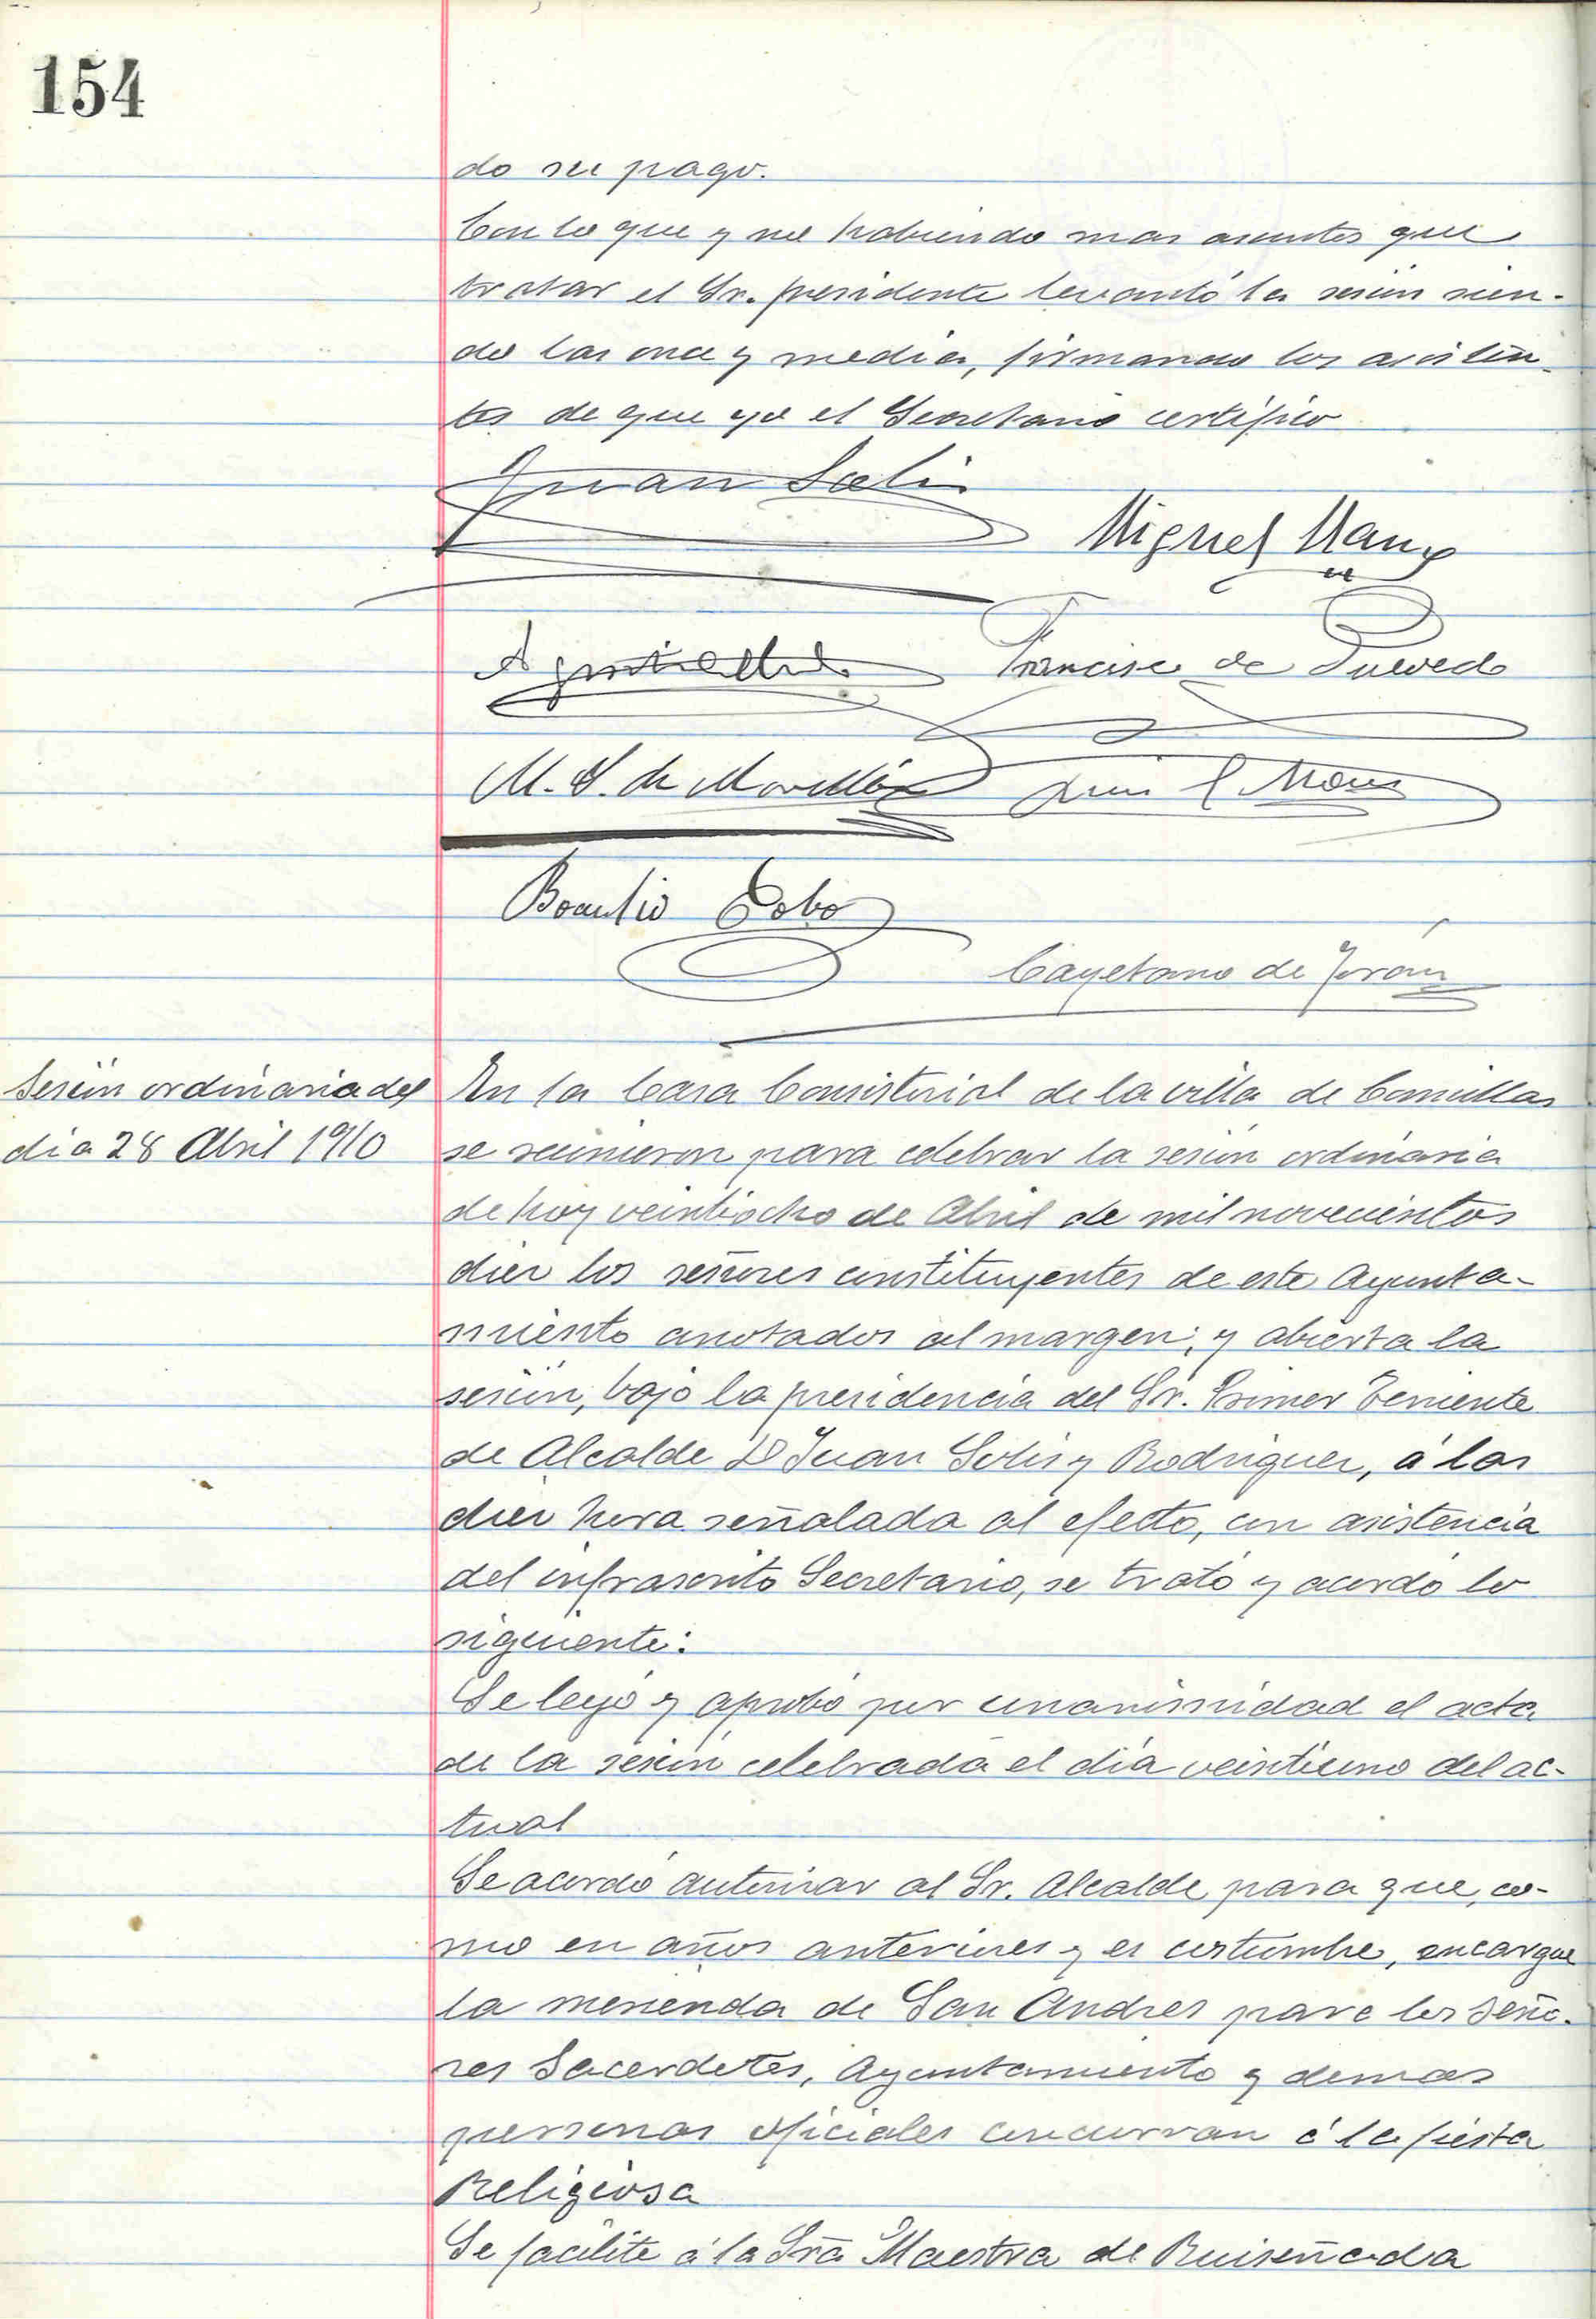 154
do su pago.
Con lo que y no habiendo mas asuntos que
tratar el Sr. presidente levantó la sesión sien-
do las once y media, firmando los asisten-
tes de que yo el Secretario certifico
Juan Solis
Miguel
Francisco de Quevedo
M. S. de Movellán
Luis
Braulio Cobo
Cayetano de Terán
Sesión ordinaria del
dia 28 Abril 1910
En la Casa Consistorial de la villa de Comillas
se reunieron para celebrar la sesión ordinaria
de hoy veintiocho de Abril de mil novecientos
diez los señores constituyentes de este Ayunta-
miento anotados al margen; y abierta la
sesión, bajo la presidencia del Sr. Primer Teniente
de Alcalde D Juan Solis y Rodriguez, á las
diez hora señalada al efecto, con asistencia
del infrascrito Secretario, se trató y acordó lo
siguiente:
Se leyó y aprobó por unanimidad el acta
de la sesión celebrada el día veintiuno del ac-
tual
Se acordó autorizar al Sr. Alcalde para que, co-
mo en años anteriores y es costumbre, encargue
la merienda de San Andres para los Seño-
res Sacerdotes, Ayuntamiento y demas
personas oficiales concurran á la fiesta
Religiosa
Se facilite á la Srã Maestra de Ruiseñada